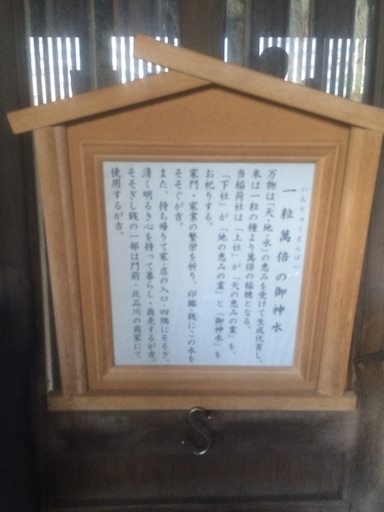 一粒萬倍の御神水
いちりゅうまんばい
万物は「天・地・水」の恵みを受けて生成化育し、
米は一粒の種より萬倍の稲穂となる。
当稲荷社は「上社」が「天の恵みの霊」を、
「下社」が「地の恵みの霊」と「御神水」を
お祀りする。
家門・家業の繁栄を祈り、印鑑・銭にこの水を
そそぐが吉。
また、持ち帰りて家・店の入口・四隅にそそぎ、
清く明るき心を持って暮らし・商売するが吉。
そそぎし銭の一部は門前・北品川の商家にて
使用するが吉。